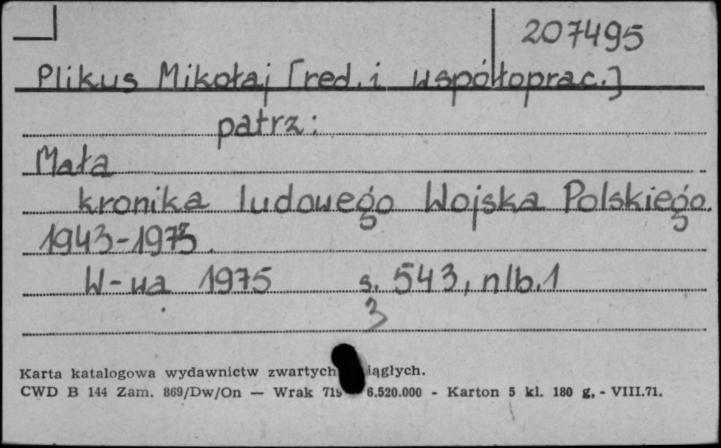 207495
Plikus Mikołaj [red. i współoprac.]
patrz:
Mała
kronika ludowego Wojska Polskiego.
1943-1973.
W-wa 1975 s. 543, nlb. 1
3
Karta katalogowa wydawnictw zwartych iągłych.
CWD B 144 Zam. 869/Dw/On — Wrak 719 6.520.000 - Karton 5 kl. 180 g. - VIII.71.